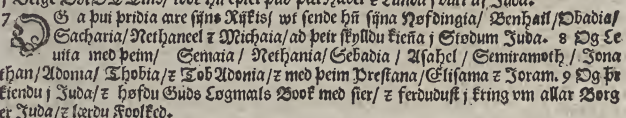 7 OG a þui þridia are sijns Rijkis/ vt sende hn sijna Høfdingia/ Benhail/ Obadia/
Sacharia/ Nethaneel ꝛ Michaia/ ad þeir skylldu kiena j Stødum Juda. 8 Og Le
uita med þeim/ Semaia/ Nethania/ Sebadia/ Asahel/ Semiramoth/ Jona
than/ Adonia/ Thobia/ ꝛ Tob Adonia/ ꝛ med þeim Prestana/ Elisama ꝛ Joram. 9 Og þr
kiendu j Juda/ ꝛ høfdu Guds Løgmals Book med sier/ ꝛ ferdudust j kring vm allar Borg
er Juda/ ꝛ lærdu Foolked.